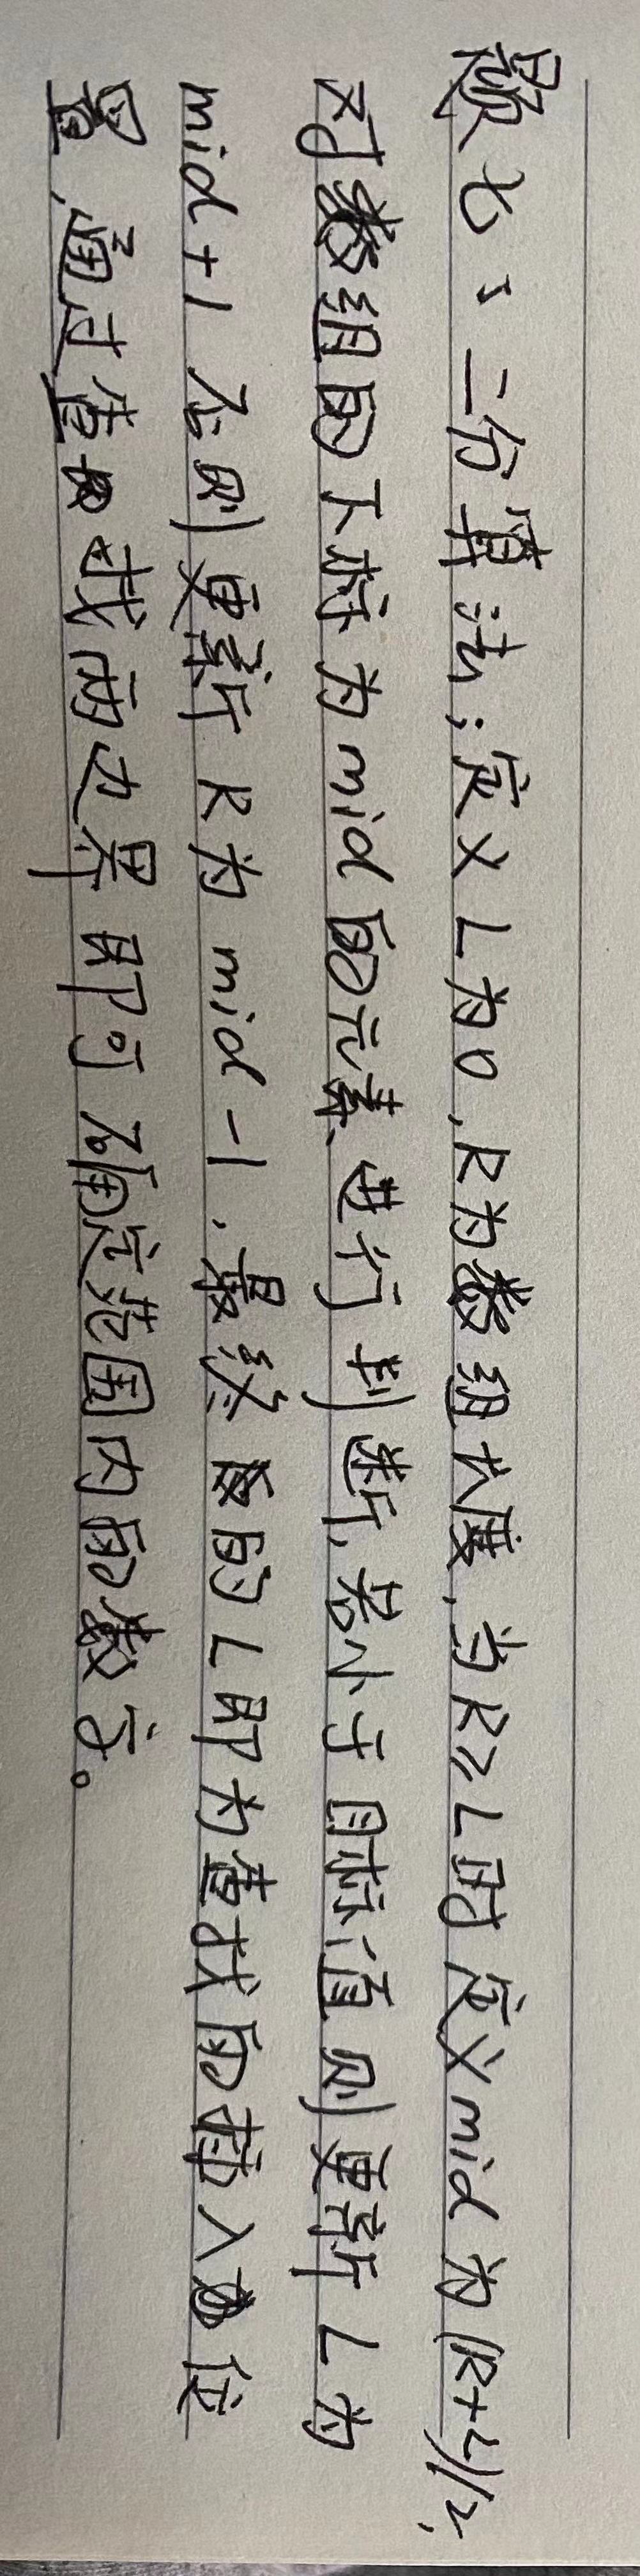 题七：二分算法：定义L为0，R为数组长度，当R≥L时定义mid为(R+L)/2，
对数组的下标为mid的元素进行判断，若小于目标值则更新L为
mid+1 否则更新R为mid-1，最终的L即为查找的插入位
置，通过查找两边界即可确定范围内的数字。